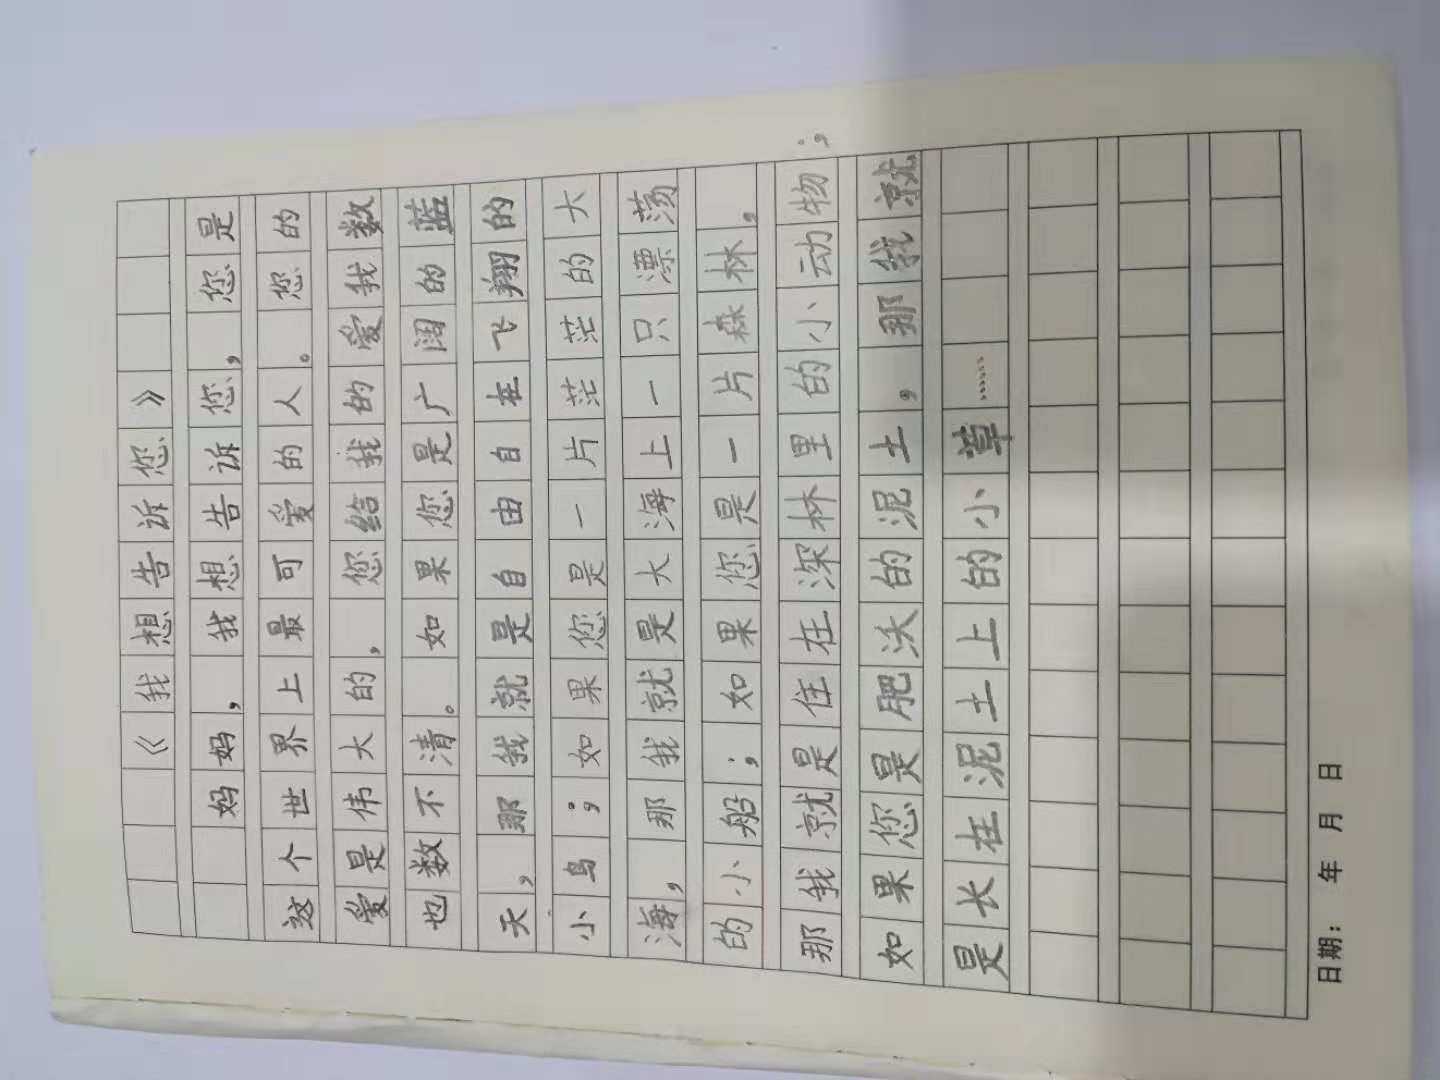 《我想告诉您》
妈妈，我想告诉您，您是
这个世界上最可爱的人。您的
爱是伟大的，您给我的爱我数
也数不清。如果您是广阔的蓝
天，那我就是自由自在飞翔的
小鸟；如果您是一片茫茫的大
海，那我就是大海上一只漂荡
的小船；如果您是一片森林，
那我就是住在深林里的小动物；
如果您是肥沃的泥土，那我就
是长在泥土上的小草……
日期： 年 月 日